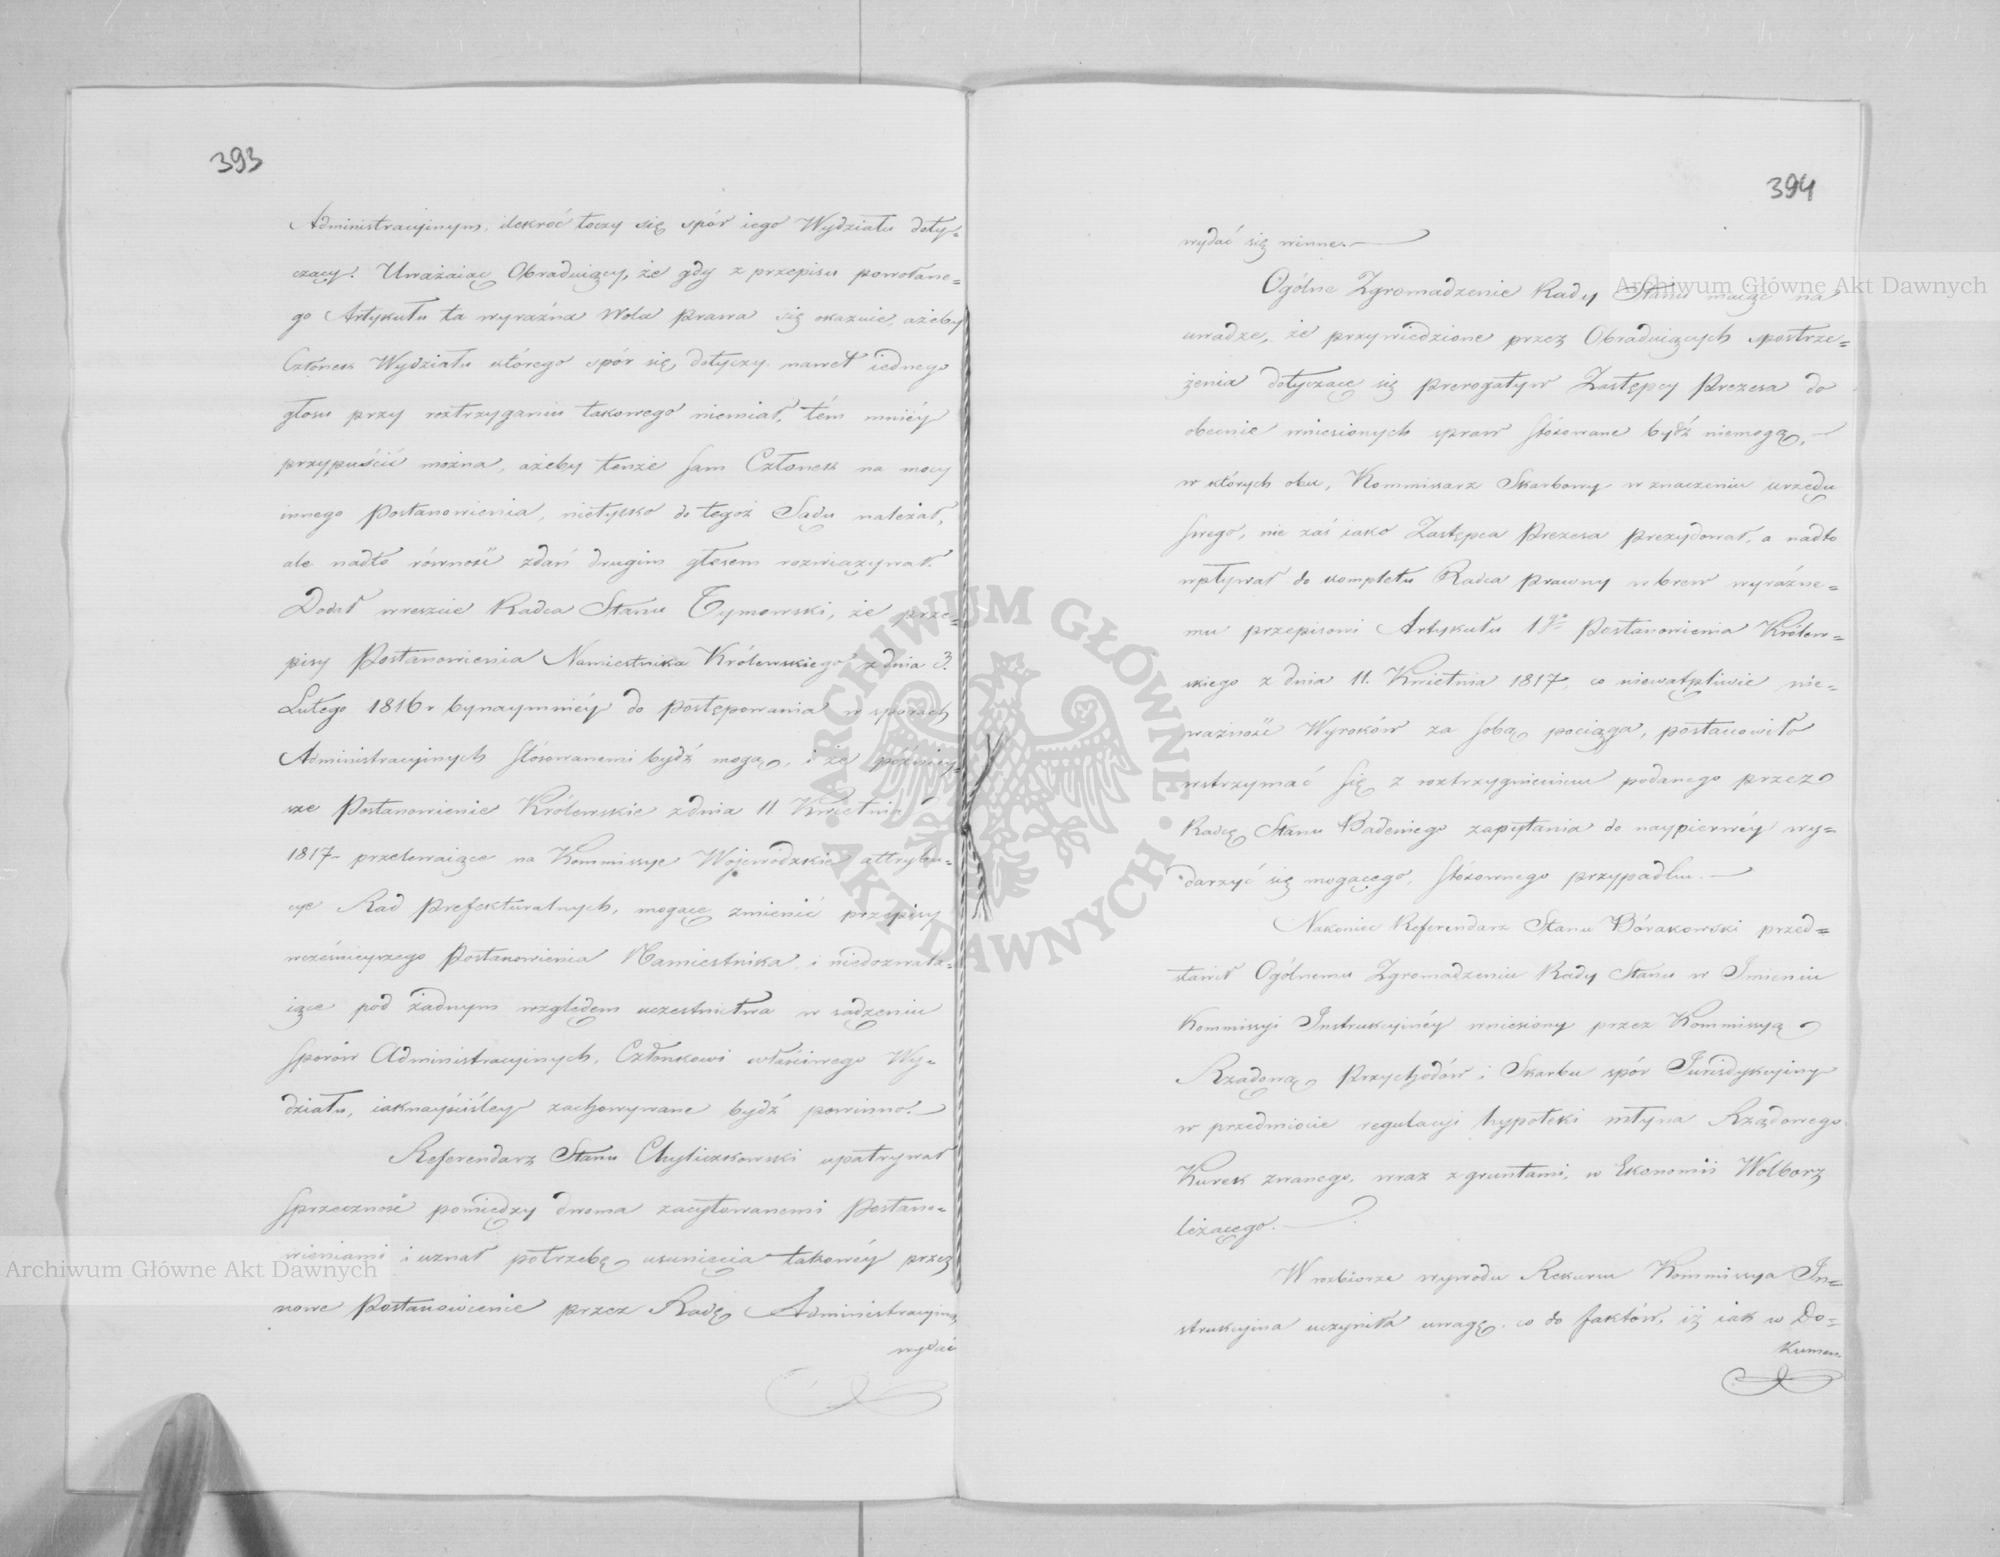 393
Administracyinym, ilekroć toczy się spór iego Wydziału doty=
czący. Uważaiąc Obraduiący, że gdy z przepisu powołane=
go Artykułu ta wyraźna Wola prawa się okazuie, ażeby
Członek Wydziału którego spór się dotyczy nawet iednego
głosu przy roztrzyganiu takowego niemiał, tém mniéy
przypuścić można, ażeby tenże sam Członek na mocy
innego Postanowienia, nietylko do tegoż Sądu należał,
ale nadto równość zdań drugim głosem rozwiązywał.
Dodał wreszcie Radca Stanu Tymowski, że prze=
pisy Postanowienia Namiestnika Królewskiego z dnia 3.
Lutego 1816 r bynaymniéy do postępowania w sporach
Administracyinych stósowanemi bydź mogą, i że późniey=
sze Postanowienie Królewskie z dnia 11 Kwietnia
1817 przelewaiące na Kommissye Wojewódzkie attrybu=
cye Rad Prefekturalnych, mogące zmienić przepisy
wcześnieyszego Postanowienia Namiestnika i niedozwala=
iące pod żadnym względem uczestnictwa w sądzeniu
sporów Administracyinych, Członkowi właściwego Wy=
działu, iaknayściśley zachowywane bydź powinno.
Referendarz Stanu Chyliczkowski upatrywał
sprzeczność pomiędzy dwoma zacytowanemi Postano=
wieniami i uznał potrzebę usunięcia takowéy przez
nowe Postanowienie przez Radę Administracyiną
wydać
394
wydać się winne.
Ogólne Zgromadzenie Rady Stanu maiąc na
uwadze, że przywiedzione przez Obraduiących spostrze=
żenia dotyczące się prerogatyw Zastępcy Prezesa do
obecnie wniesionych spraw stósowane bydź niemogą,
w których obu, Kommissarz Skarbowy w znaczeniu urzędu
swego, nie zaś iako Zastępca Prezesa prezydował, a nadto
wpływał do kompletu Radca prawny wbrew wyraźne=
mu przepisowi Artykułu 1go Postanowienia Królew=
skiego z dnia 11. Kwietnia 1817, co niewątpliwie nie=
ważność Wyroków za sobą pociąga, postanowiło
wstrzymać się z roztrzygnieniem podanego przez
Radcę Stanu Badeniego zapytania do naypierwéy wy=
darzyć się mogącego, stósownego przypadku.
Nakoniec Referendarz Stanu Bórakowski przed=
stawił Ogólnemu Zgromadzeniu Rady Stanu w Imieniu
Kommissyi Instrukcyinéy wniesiony przez Kommissyą
Rządową Przychodów i Skarbu spór Jurisdykcyiny
w przedmiocie regulacyi hypoteki młyna Rządowego
Kurek zwanego, wraz z gruntami, w Ekonomii Wolborz
leżącego.
W rozbiorze wywodu Rekursu Kommissya In=
strukcyina uczyniła uwagę, co do faktów, iż iak w Do=
kumen-
Archiwum Główne Akt Dawnych
Archiwum Główne Akt Dawnych
ARCHIWUM GŁÓWNE AKT DAWNYCH